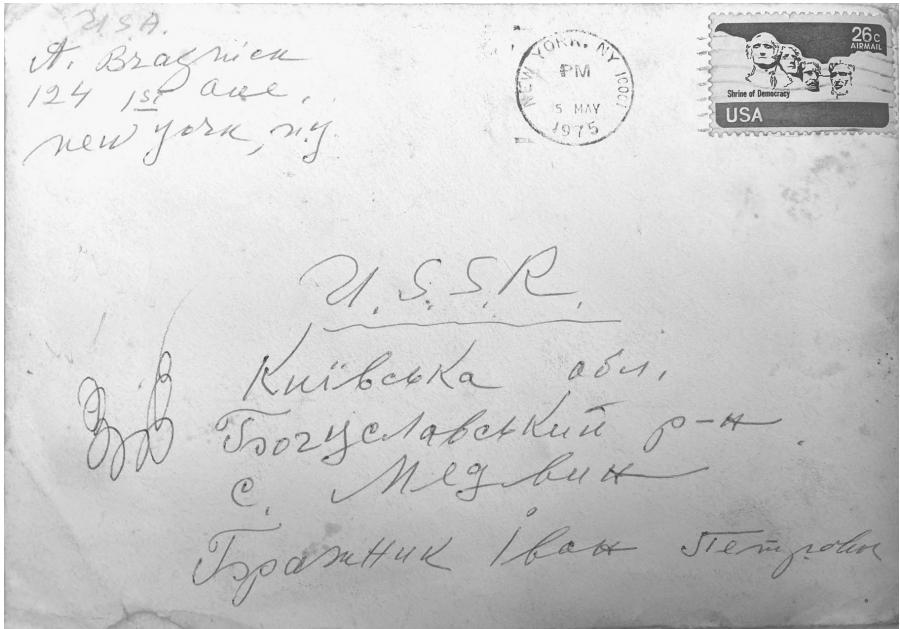 U.S.A.
A. Bragnick
124 1st ave,
new york, ny.
NEW YORK, NY 10001
PM
5 MAY
1975
26c
AIRMAIL
Shrine of Democracy
USA
U.S.S.R.
Київська обл.
Богуславський р-н
с. Медвин
Бражник Іван Петрович